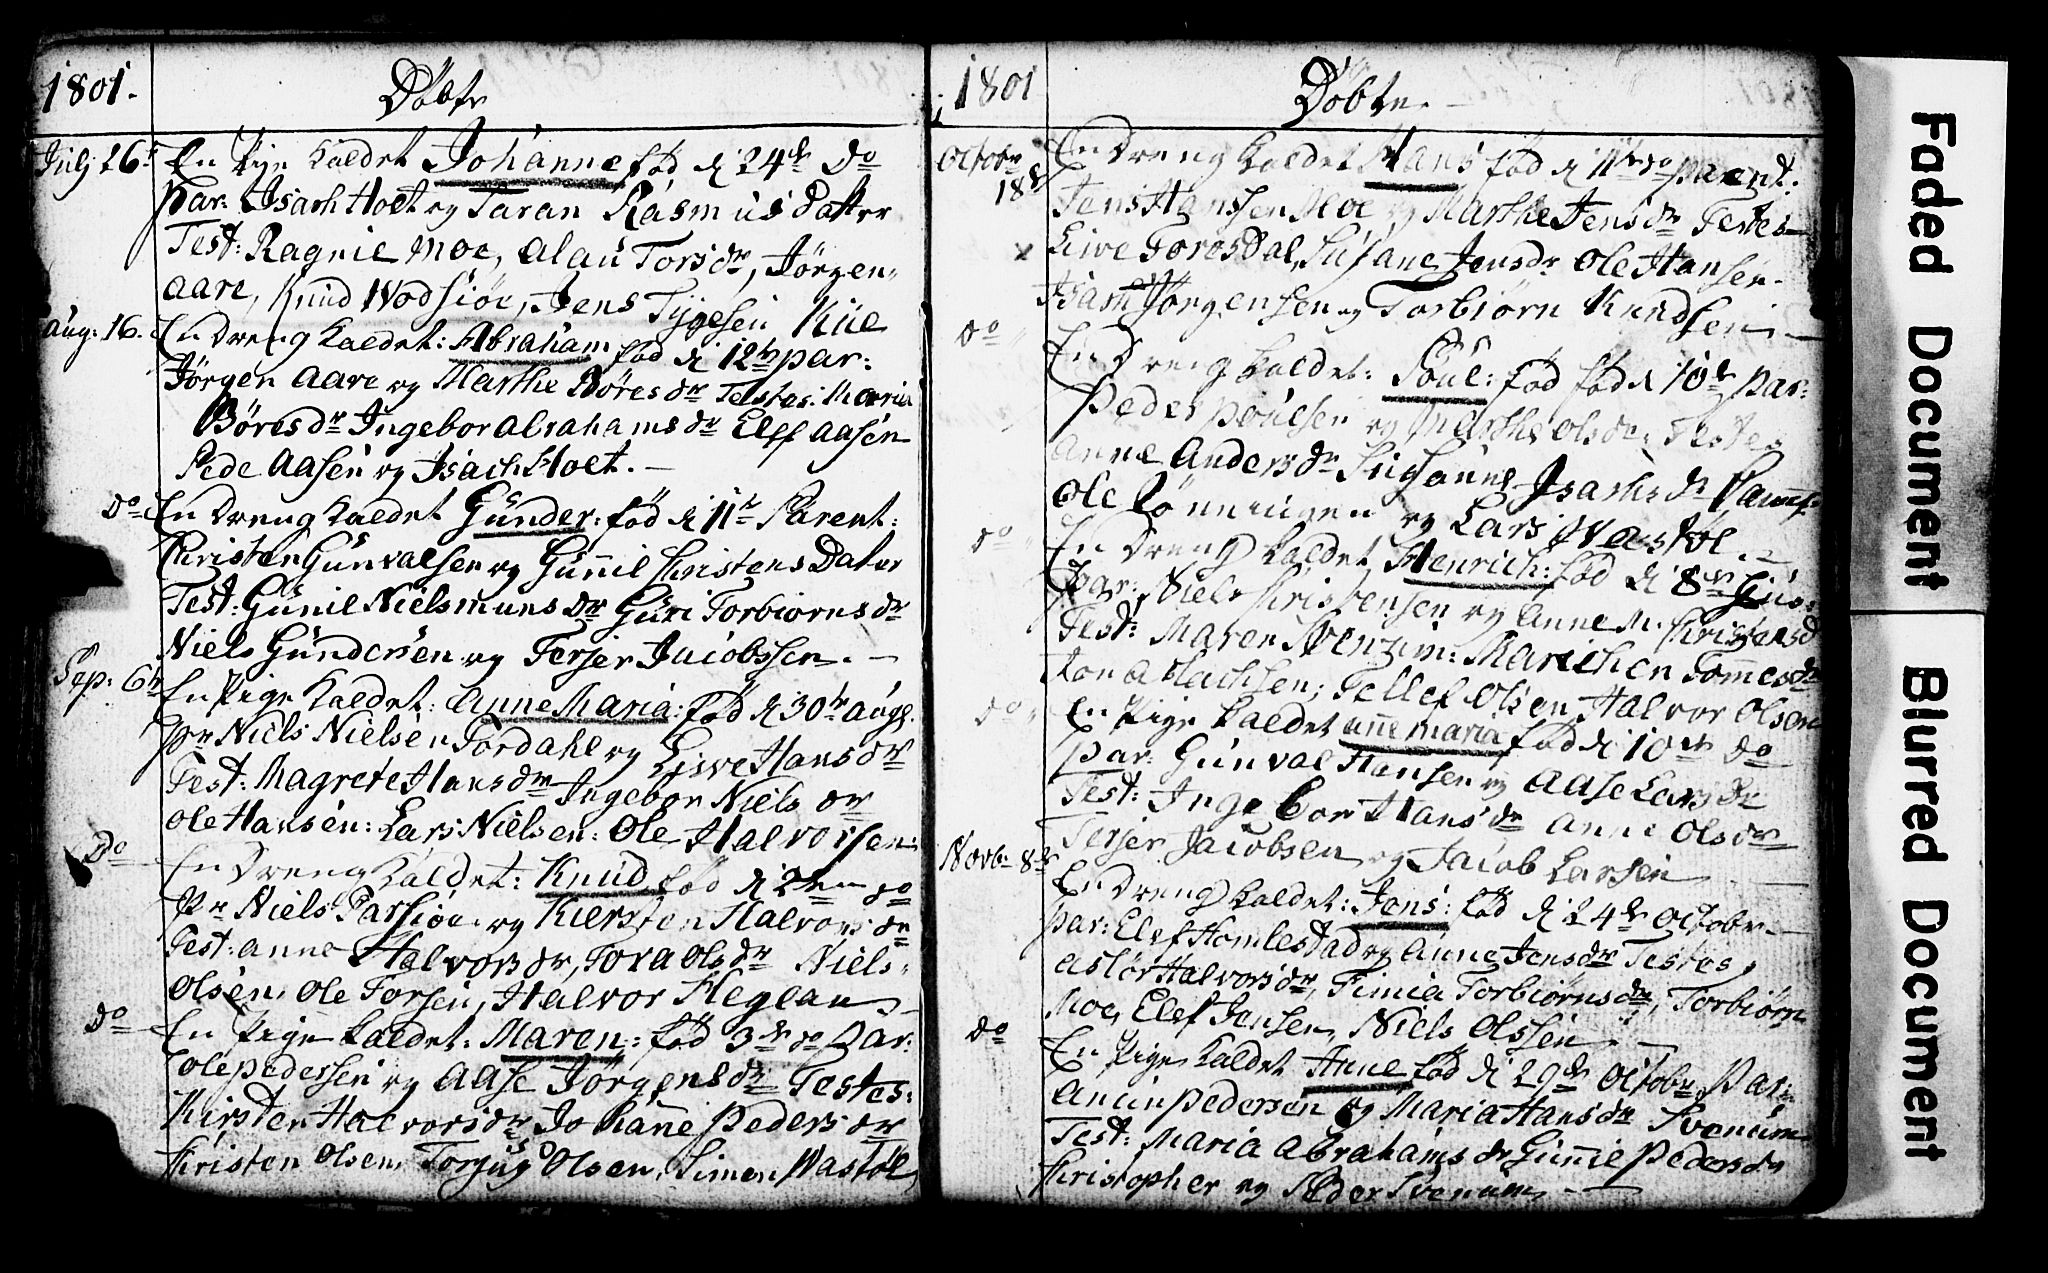 1801.
Döbte
July 26de En Pige kaldet Johanne fød d 24de do
par: Isach Hoet og Taran Rasmus Datter
Test: Ragnil Moe, Alau Tors dr, Jörgen
Aare, Knud Wodsiöe, Jens Tygesen Kile
Aug: 16. En Dreng kaldet: Abraham fød d 12te par:
Jörgen Aare og Marthe Böres dr Testes: Maria
Böres dr Ingebor Abrahams dr Elef Aasen
Pede Aasen og Isach Hoet.
Do En Dreng kaldet Günder: fød d 11te Parent:
Christen Günvalsen og Gunnil Christens Dater
Test: Gunil Nielsmuns dr Guri Torbiörns dr
Niels Gündersen og Terjer Jacobssen.
Sep: 6te En Pige kaldet: Anne Maria: fød d 30te Augs.
Pr Niels Nielsen Fordahl og Live Hans dr
Test: Magrete Hans dr Ingebor Niels dr
Ole Hansen: Lars Nielsen: Ole Halvorsen:
Do En Dreng kaldet: Knud fød d 2den do
Pr Niels Parsiöe og Kiersten Halvors dr
Test: Anne Halvors dr, Tora Ols dr Niels
Olsen, Ole Torsen, Halvor Heglan
Do En Pige kaldet: Maren: fød 3de do Par:
Ole Pedersen og Aase Jörgens dr Testes:
Kirsten Halvors dr Johanne Peders dr
Christen Olsen, Torjus Olsen, Simon Wastöl
1801
Döbte.
Octobr 18de En Dreng kaldet Hans fød d 11te do parent:
Jens Hanssen Moe og Marthe Jens dr Testes
Live Foresdal, Susane Jens dr Ole Hansen
Isach Jörgensen og Torbiörn Knudsen
Do En Dreng kaldet: Poul: fød fød d 10de Par:
Peder Poulsen og Marthe Ols dr. Testes
Anne Anders dr Susanne Isachs dr
Ole Lönningen og Lars Wastöl.
Do En Dreng kaldet Henrich: fød d 8de
Par: Niels Christensen og Anne M. Christens d
Test: Maren Marichen Tommes dr
Aslachsen, Tellef Olsen, Halvor Olsen
Do En Pige kaldet Anne Maria fød d 10de do
Par: Günval Hansen og Aase Lars dr
Test: Ingebor Hans dr Anne Ols dr
Terjer Jacobsen og Jacob Larsen
Novbr 8de En Dreng kaldet: Jens: fød d 24de Octobr
Par: Elef Homlestad og Anne Jens dr Testes
Aslör Halvors dr, Timia Torbiörns dr, Torbiörn
Moe, Elef Jensen, Niels Olssen
Do En Pige kaldet Anne fød d 29de Octobr Par:
Anun Pedersen og Maria Hans dr Svenum
Test: Maria Abrahams dr Gunnil Peders dr
Christopher og Peder Svenum
Faded Document
Blurred Document